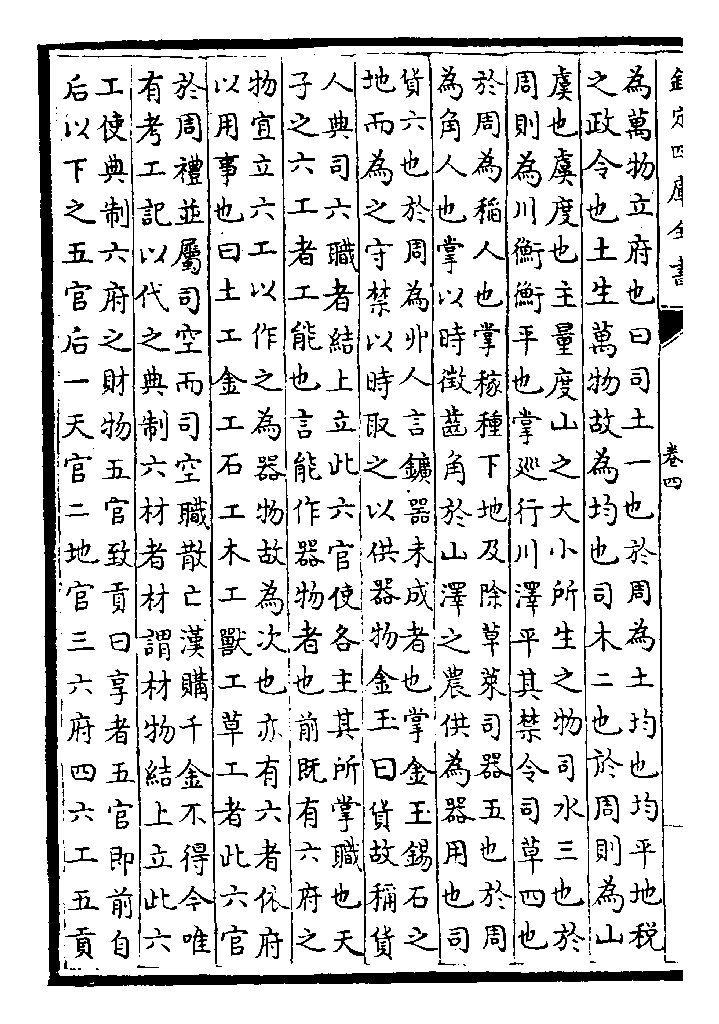 欽定四庫全書
卷四
為萬物立府也曰司土一也於周為土均也均平地税
之政令也土生萬物故為均也司木二也於周則為山
虞也虞度也主量度山之大小所生之物司水三也於
周則為川衡衡平也掌巡行川澤平其禁令司草四也
於周為稻人也掌稼種下地及除草萊司器五也於周
為角人也掌以時徵齒角於山澤之農供為器用也司
貨六也於周為丱人言鑛器未成者也掌金玉錫石之
地而為之守禁以時取之以供器物金玉曰貨故稱貨
人典司六職者結上立此六官使各主其所掌職也天
子之六工者工能也言能作器物者也前既有六府之
物宜立六工以作之為器物故為次也亦有六者依府
以用事也曰土工金工石工木工獸工草工者此六官
於周禮並屬司空而司空職散亡漢購千金不得今唯
有考工記以代之典制六材者材謂材物結上立此六
工使典制六府之財物五官致貢曰享者五官即前自
后以下之五官后一天官二地官三六府四六工五貢